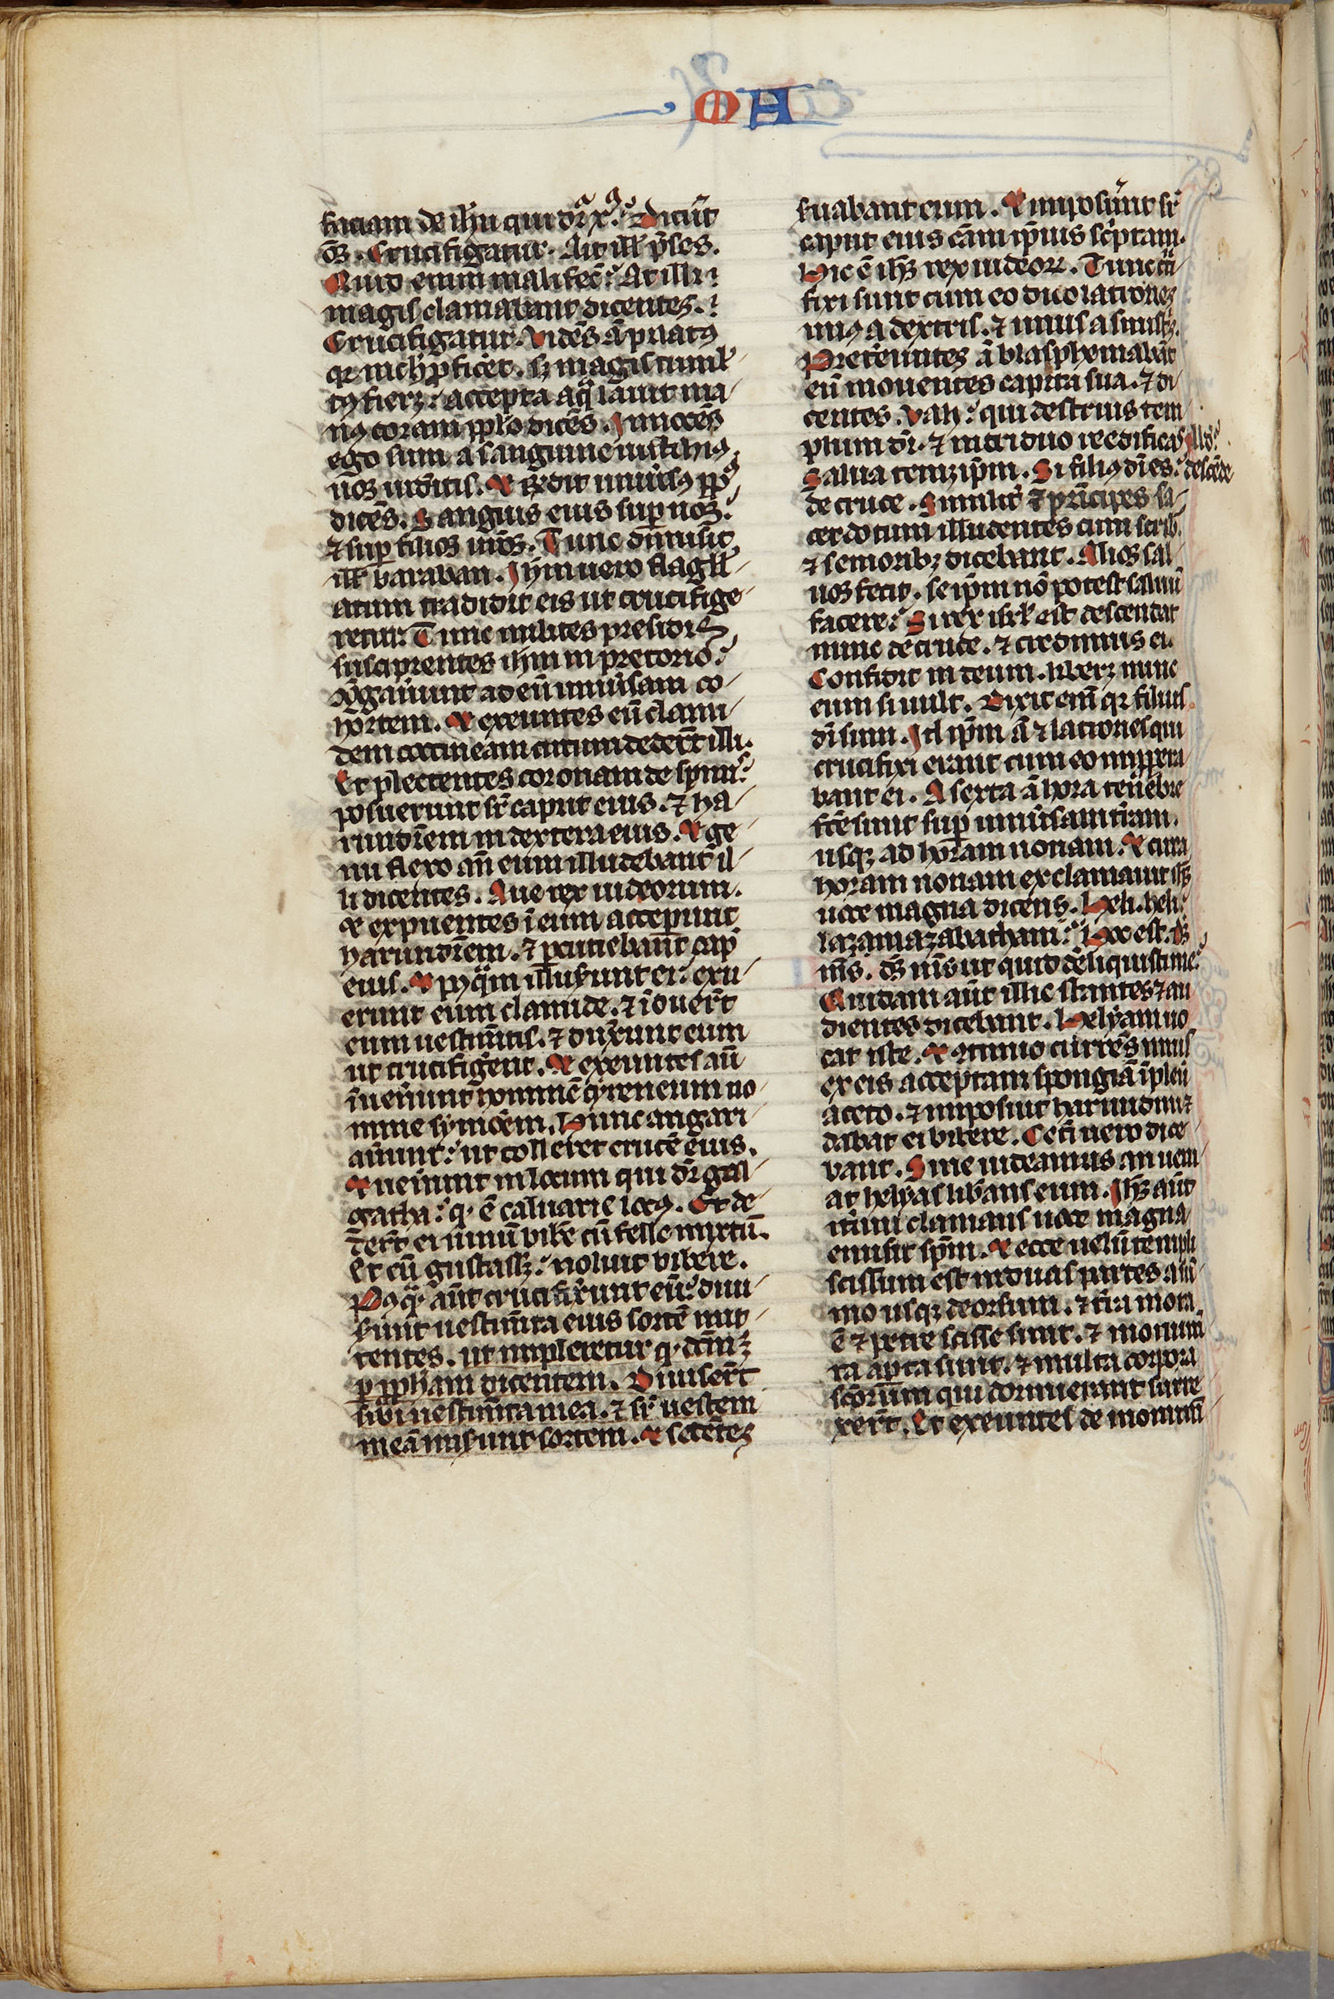 MA
faciam de ihu qui dr̄ xp̄s. Dicūt
oēs. Crucifigatur. Ait ill̄ p̄ses.
Quid enim mali fec̄? At illi
magis clamabant dicentes.
Crucifigatur. Vidēs ā pilatꝰ
qr nich̄ ꝓficet. sꝫ magis tumul
tꝰ fieret. accepta aq̄ lauit ma
nꝰ coram pplo dicēs. Innocēs
ego sum a sanguine iusti hiꝰ
uos uidēitis. Et r̄ndit uniūsꝰ ppl̄s
dicēs. Sanguis eius suꝑ nos.
⁊ suꝑ filios nr̄os. Tunc dimisit
ill̄ baraban. ihm uero flagell
atum tradidit eis ut crucifige
retur. Tunc milites presidis
suscipientes ihm in pretorio.
ꝯgauunt ad eū uniūsam co
hortem. Et exeuntes eū clami
dem coccineam circumdedert̄ illi.
Et plectentes coronam de spinis
posuerunt sr̄ caput eius. ⁊ ha
rundinem in dextera eius. Et ge
nu flexo an̄ eum illudebant il
li dicentes. Aue rex iudeorum.
et expuentes ī eum acceperunt
harundinem. ⁊ ꝑcutiebant cap̄
eius. Et pꝰqm̄ illuserunt ei. exu
erunt eum clamide. ⁊ īduert̄
eum uestim̄tis. ⁊ duxerunt eum
ut crucifigerent. Et exeuntes aū
īuenerunt hominē cyreneum no
mine symonem. Hunc angari
auerunt. ut tolleret crucē eius.
Et uenerunt in locum qui dr̄ gol
gatha. qꝫ ē caluarie locꝰ. Et de
dert̄ ei uinū bibē cū felle mixtū.
Et cū gustasset. noluit bibere.
Pꝰq̄ aūt crucifixerunt eū. diui
serunt uestim̄ta eius sortē mit
tentes. ut impleretur qꝫ dc̄m ē
ꝑ ꝓpham dicentem. Diuisert̄
sibi uestim̄ta mea. ⁊ sr̄ uestem
meā miserunt sortem. Et sedētes
suabant eum. Et imposuerunt sr̄
caput eius cām ipsius sc̄ptam.
Hic ē ihs rex iudeoꝝ. Tunc cru
fixi sunt cum eo duo latrones
unꝰ a dextris. ⁊ unus a sinistris.
Pretereuntes ā blasphemabāt
eū mouentes capita sua. ⁊ di
centes. Vah. qui destruis tem
plum dī. ⁊ in triduo reedificas illd̄.
Salua temetipm̄. Si filiꝰ dī es. descēde
de cruce. Similit̄ ⁊ prīcipes sa
cerdotum illudentes cum scrib.
⁊ senioribꝫ dicebant. Alios sal
uos fecit. se ipm̄ nō potest saluū
facere. Si rex isrl̄ est descendat
nunc de cruce. ⁊ credimus ei.
Confidit in deum. liberet nunc
eum si uult. Dixit eni qr filius
dī sum. Id ipm̄ ā ⁊ latrones qui
crucifixi erant cum eo impropera
bant ei. A sexta ā hora tenebre
fc̄e sunt suꝑ uniūsam tr̄am.
usqꝫ ad horam nonam. Et circa
horam nonam exclamauit ihs
uoce magna dicens. Heli. heli.
lazamazabathani. Hoc est. ds̄
ms̄. ds̄ ms̄ ut quid dereliquisti me.
Quidam aūt illic stantes ⁊ au
dientes dicebant. Helyam uo
cat iste. Et ꝯtinuo currēs unus
ex eis acceptam spongiā īpleū
aceto. ⁊ imposuit harundini ⁊
dabat ei bibere. Ceti uero dice
bant. Sine uideamus an ueni
at helyas liberans eum. Ihs aūt
iterum clamans uoce magna
emisit spm̄. Et ecce uelū templi
scissum est in duas partes a sū
mo usqꝫ deorsum. ⁊ tr̄a mota
ē ⁊ petre scisse sunt. ⁊ monum̄
ta aꝑta sunt. ⁊ multa corpora
sc̄orum qui dormierant surre
xert̄. Et exeuntes de monum̄